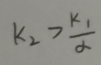 K₂ > K₁/α